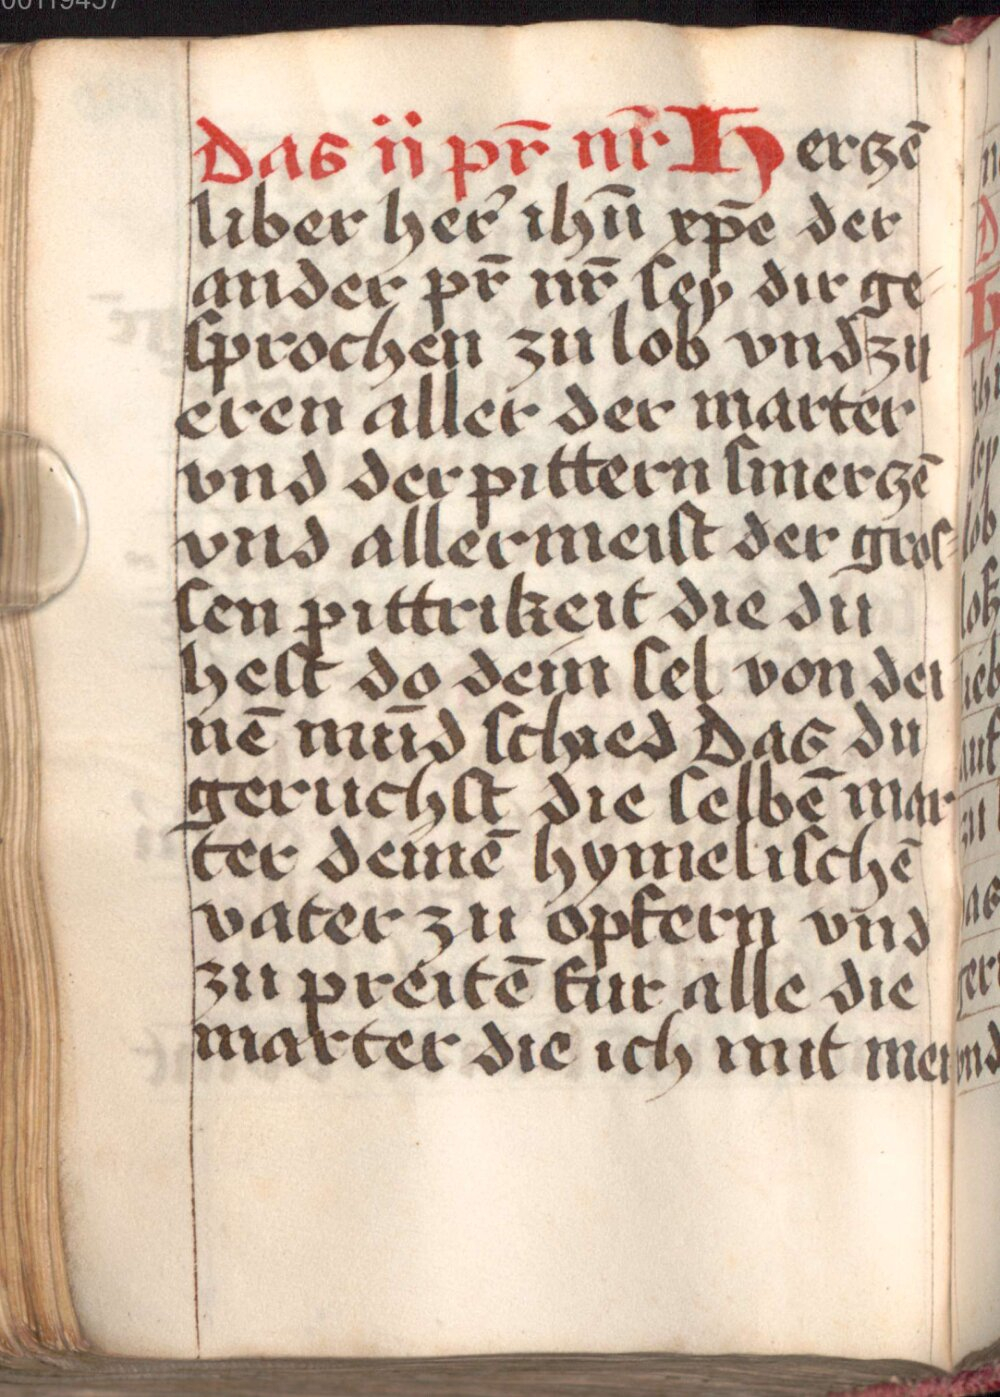 Das ii pr̄ nr̄ Herczē
liber her̕ ihū xp̄e der
ander pr̄ nr̄ ſey dir ge
ſprochen zu lob vnd zu
eren aller der marter
vnd der pittern ſmerczē
vnd allermeiſt der groſ-
ſen pittrikeit die du
heſt do dein ſel von dei
nē mūd ſchied Das du
geruchſt die ſelbē mar
ter deinē hymeliſchē
vater zu opfern vnd
zu preitē fur alle die
marter die ich mit mei